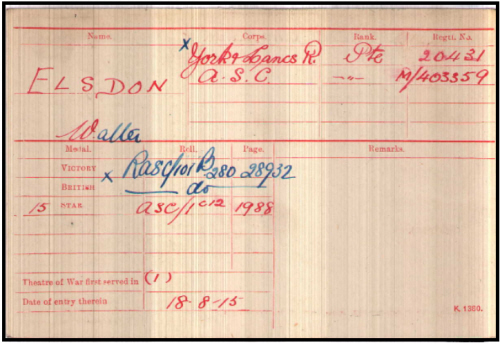 Name. Corps. Rank. Regtl. No.
x York & Lancs R. Pte 20431
ELSDON A.S.C -"- M/403359
Walter
Medal. Roll. Page. Remarks.
VICTORY x RASC/101 B 280 28932
BRITISH do
15 STAR ASC/1 C12 1988
Theatre of War first served in (1)
Date of entry therein 18-8-15
K. 1380.